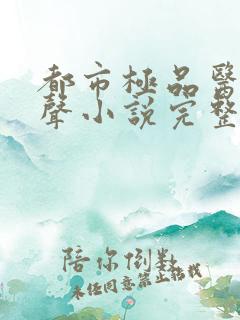 都市極品醫
聲小說完整
陪你倒數
未任同意禁止轉載